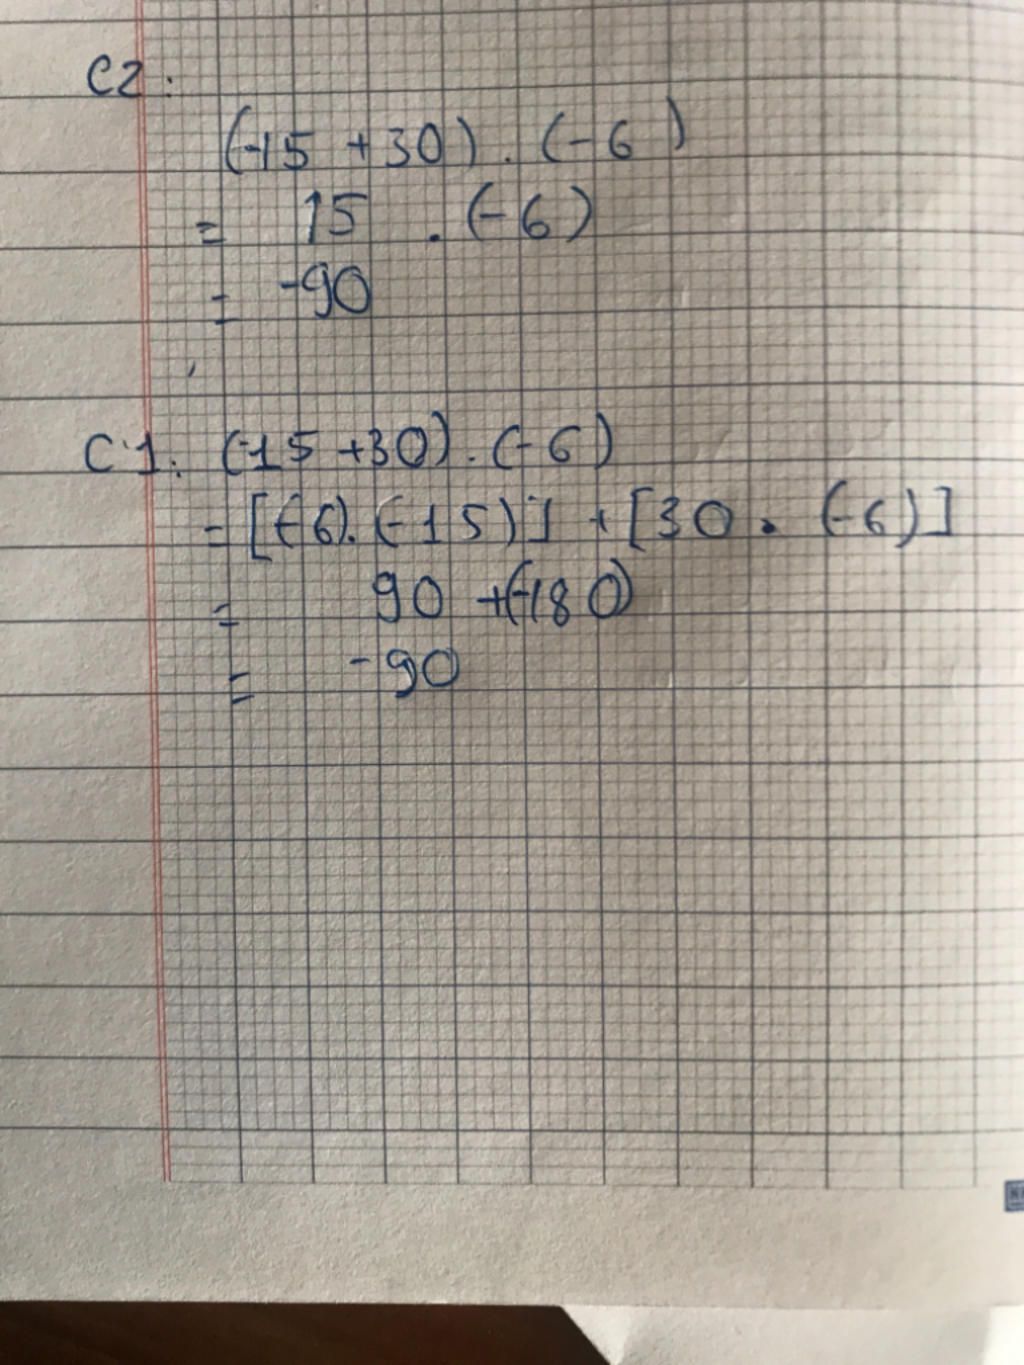 C2:
(-15 +30) . (-6)
= 15 . (-6)
= -90
C1: (-15 +30) . (-6)
= [(-6).(-15)] + [30 . (-6)]
= 90 +(-180)
= -90